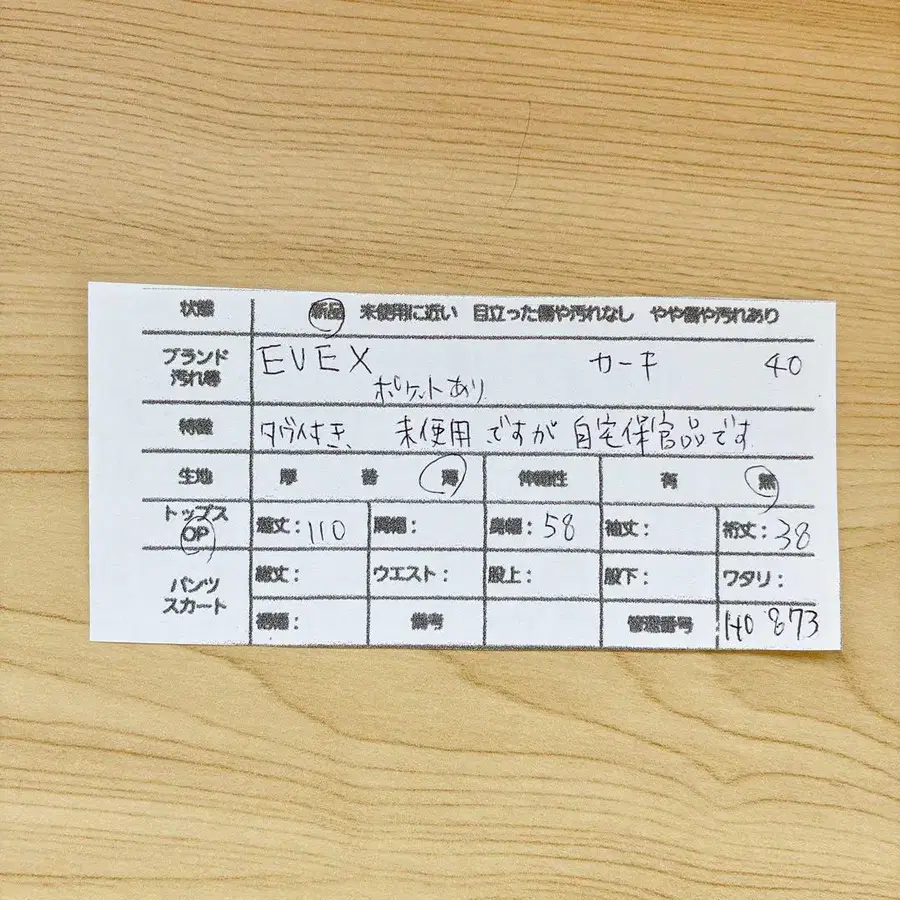 状態 新品 未使用に近い 目立った傷や汚れなし やや傷や汚れあり
ブランド EVEX カーキ 40
汚れ等 ポケットあり
特徴 タグ付き 未使用ですが自宅保管品です
生地 厚 普 薄 伸縮性 有 無
トップス
OP 総丈:110 肩幅: 身幅:58 袖丈: 裄丈:38
パンツ
スカート 総丈: ウエスト: 股上: 股下: ワタリ:
裾幅: 備考 管理番号 140873